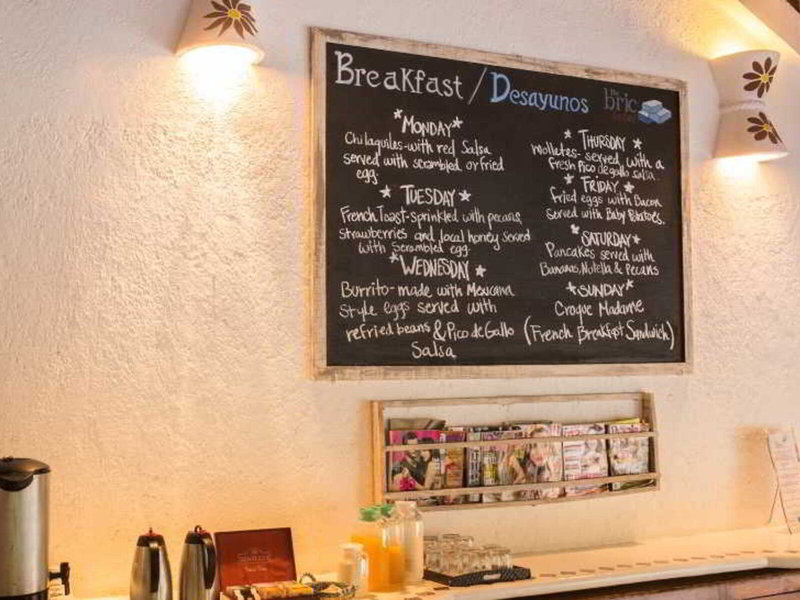 Breakfast / Desayunos
the bric
MONDAY
Chilaquiles-with red Salsa
served with scrambled or fried
egg.
TUESDAY
French Toast-sprinkled with pecans,
strawberries and local honey served
with scrambled egg.
WEDNESDAY
Burrito-made with Mexicana
style eggs served with
refried beans & Pico de Gallo
Salsa
THURSDAY
Molletes-served with a
fresh Pico de gallo salsa.
FRIDAY
fried eggs with Bacon
Served with Baby Potatoes.
SATURDAY
Pancakes served with
Bananas, Nutella & Pecans
SUNDAY
Croque Madame
(French Breakfast Sandwich)